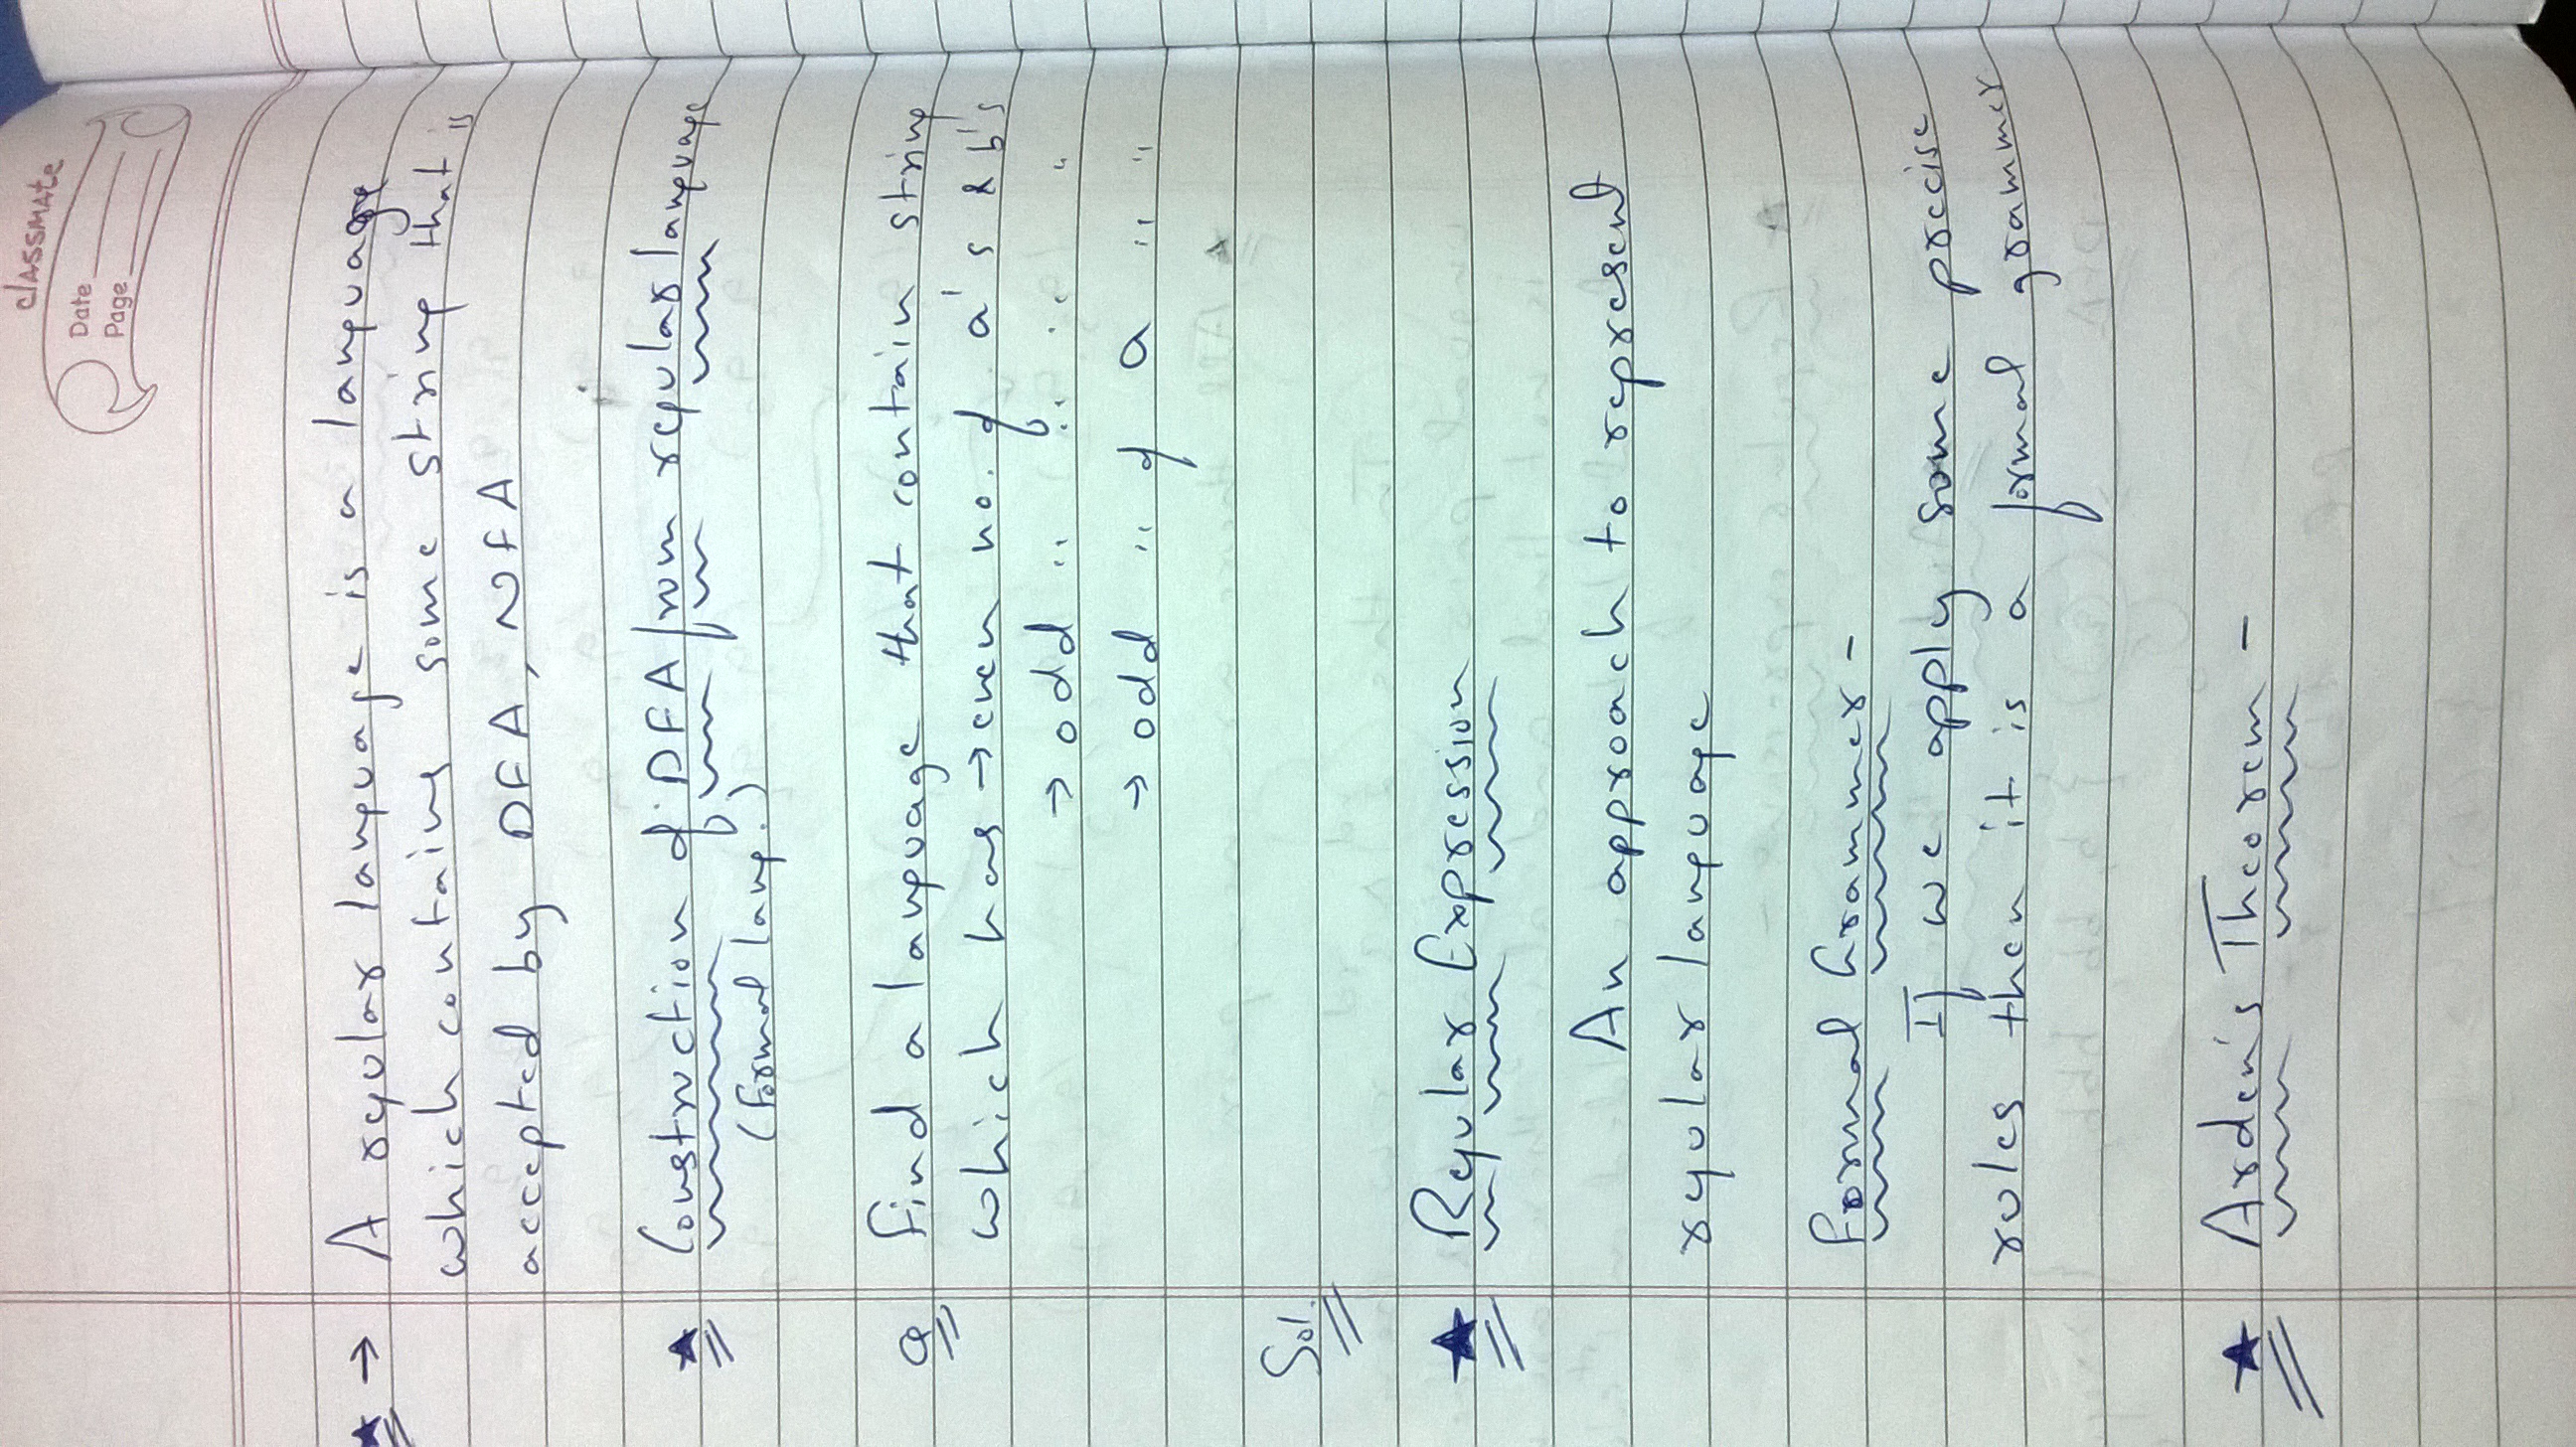 classmate
Date
Page
★ → A regular language is a language
which contains some string that is
accepted by DFA, NFA
★ Construction of DFA from regular language
(Formal lang.)
Q Find a language that contain string
which has → even no. of a's & b's
→ odd " " " "
→ odd " of a " "
Sol.
★ Regular Expression
An approach to represent
regular language
Formal Grammer -
If we apply some precise
rules then it is a formal grammer
★ Arden's Theorem -